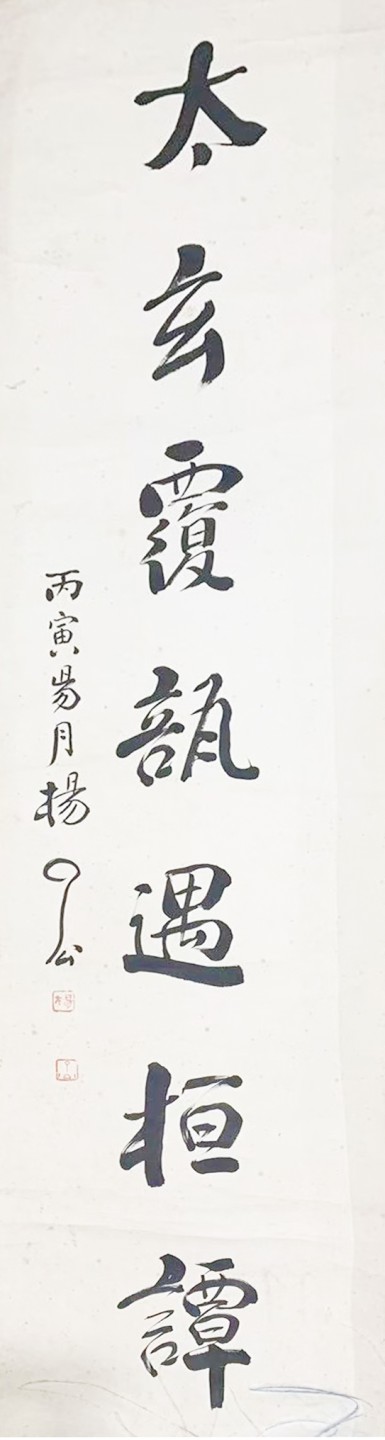 太玄覆瓿遇桓譚
丙寅昜月楊了公